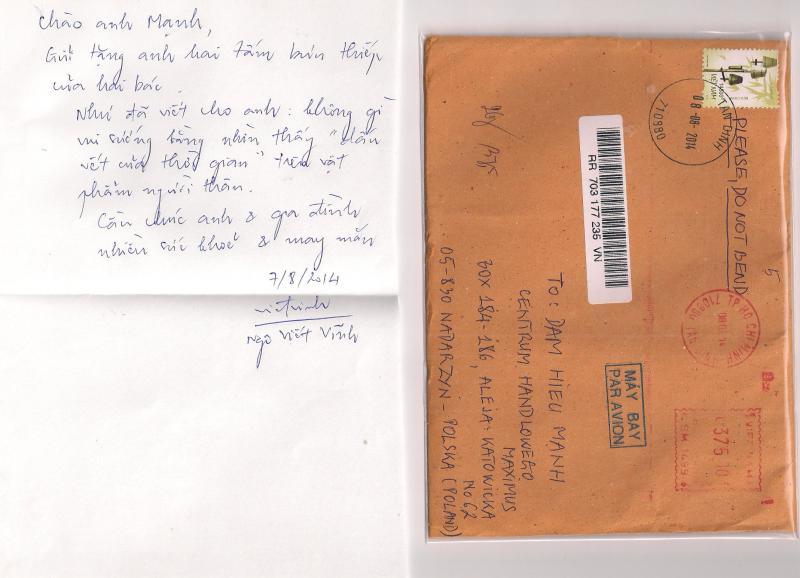 Chào anh Mạnh,
Gửi tặng anh hai tấm bưu thiếp
của hai bác.
Như đã viết cho anh: không gì
vui sướng bằng nhìn thấy "dấu
vết của thời gian" trên vật
phẩm người thân.
Cầu chúc anh & gia đình
nhiều sức khoẻ & may mắn
7/8/2014
Ngô Viết Vĩnh
VIỆT NAM
TÂN ĐỊNH
08-08-2014
710980
PLEASE, DO NOT BEND
5
RR 703 177 235 VN
TP HO CHI MINH
MÁY BAY
PAR AVION
TO: DAM HIEU MANH
CENTRUM HANDLOWEGO
MAXIMUS
BOX 184-186, ALEJA: KATOWICKA
No 62
05-830 NADARZYN - POLSKA (POLAND)